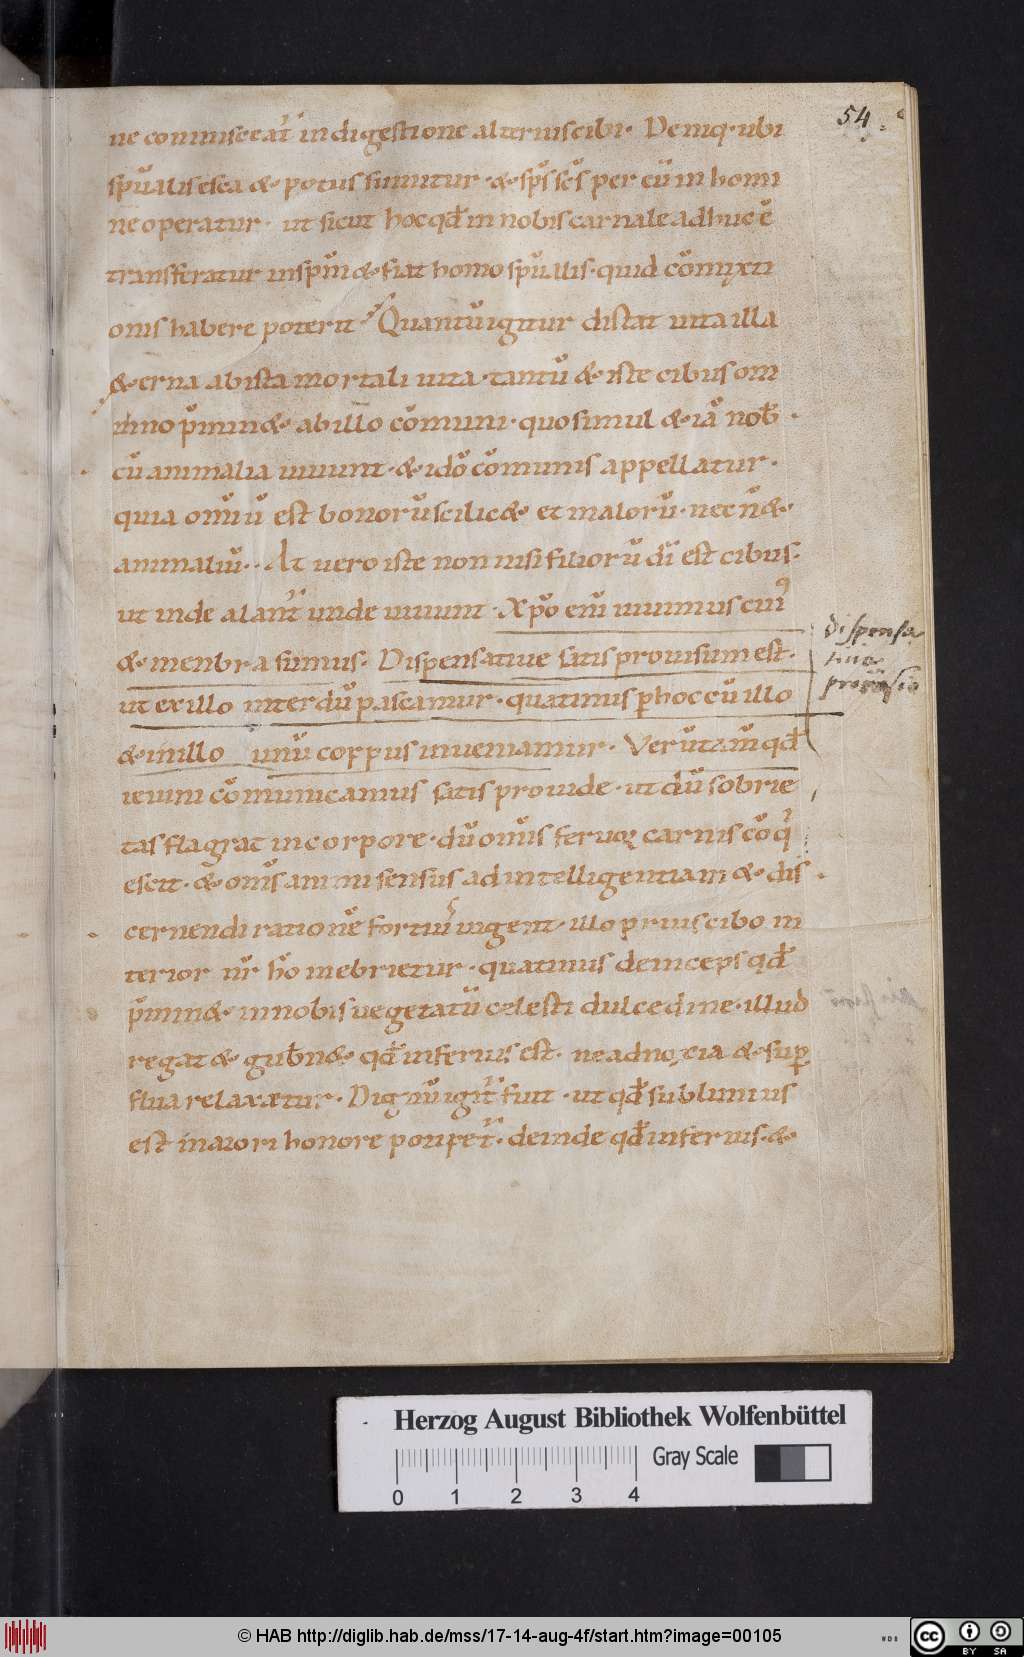 54
ne commisceat᷑ in digestione alterius cibi· Deniq· ubi
sp̄ualis esca &· potus sumitur ·&· sp̄s sc̄s per eū in homi
ne operatur· ut sicut hoc qđ in nobis carnale adhuc ē
transferatur in sp̄m &· fiat homo sp̄ualis· quid cōmixti
onis habere poterit Quantū igitur distat uita illa
&·erna ab ista mortali uita ·tantū &· iste cibus om
nino p̄min&· ab illo cōmuni· quo simul &· iā nob̄
cū animalia uiuunt ·&· idō cōmunis appellatur·
quia omniū est bonorū scilic&· et malorū· necn̄&·
animaliū·· At uero iste non nisi filiorū dī est cibus·
ut inde alant᷑ unde uiuunt· Xp̄o enī uiuimus cui᷒
&· menbra sumus· Dispensatiue satis prouisum est·
ut ex illo interdū pascamur· quatinus p̱ hoc cū illo
&· in illo unū corpus inueniamur· Verūtam̄ qđ
ieiuni cōmunicamus satis prouide· ut dū sobrie
tas flagrat in corpore· dū om̄is feruor carnis cōq
escit· &· om̄s animi sensus ad intelligentiam &· dis
cernendi rationē fortius uigent· illo prius cibo in
terior nr̄ hō inebrietur· quatinus deinceps qđ
p̄min&· in nobis uegetatū celesti dulcedine· illud
regat &· gub̄n&· qđ inferius est· ne ad noxia &· sup̱
flua relaxetur· Dignū igit᷑ fuit ·ut qđ sublimius
est maiori honore potiret᷑· deinde qđ inferius·&·
dispensa
tiua
prouisio
Herzog August Bibliothek Wolfenbüttel
Gray Scale
0 1 2 3 4
© HAB http://diglib.hab.de/mss/17-14-aug-4f/start.htm?image=00105
WDB
cc BY SA